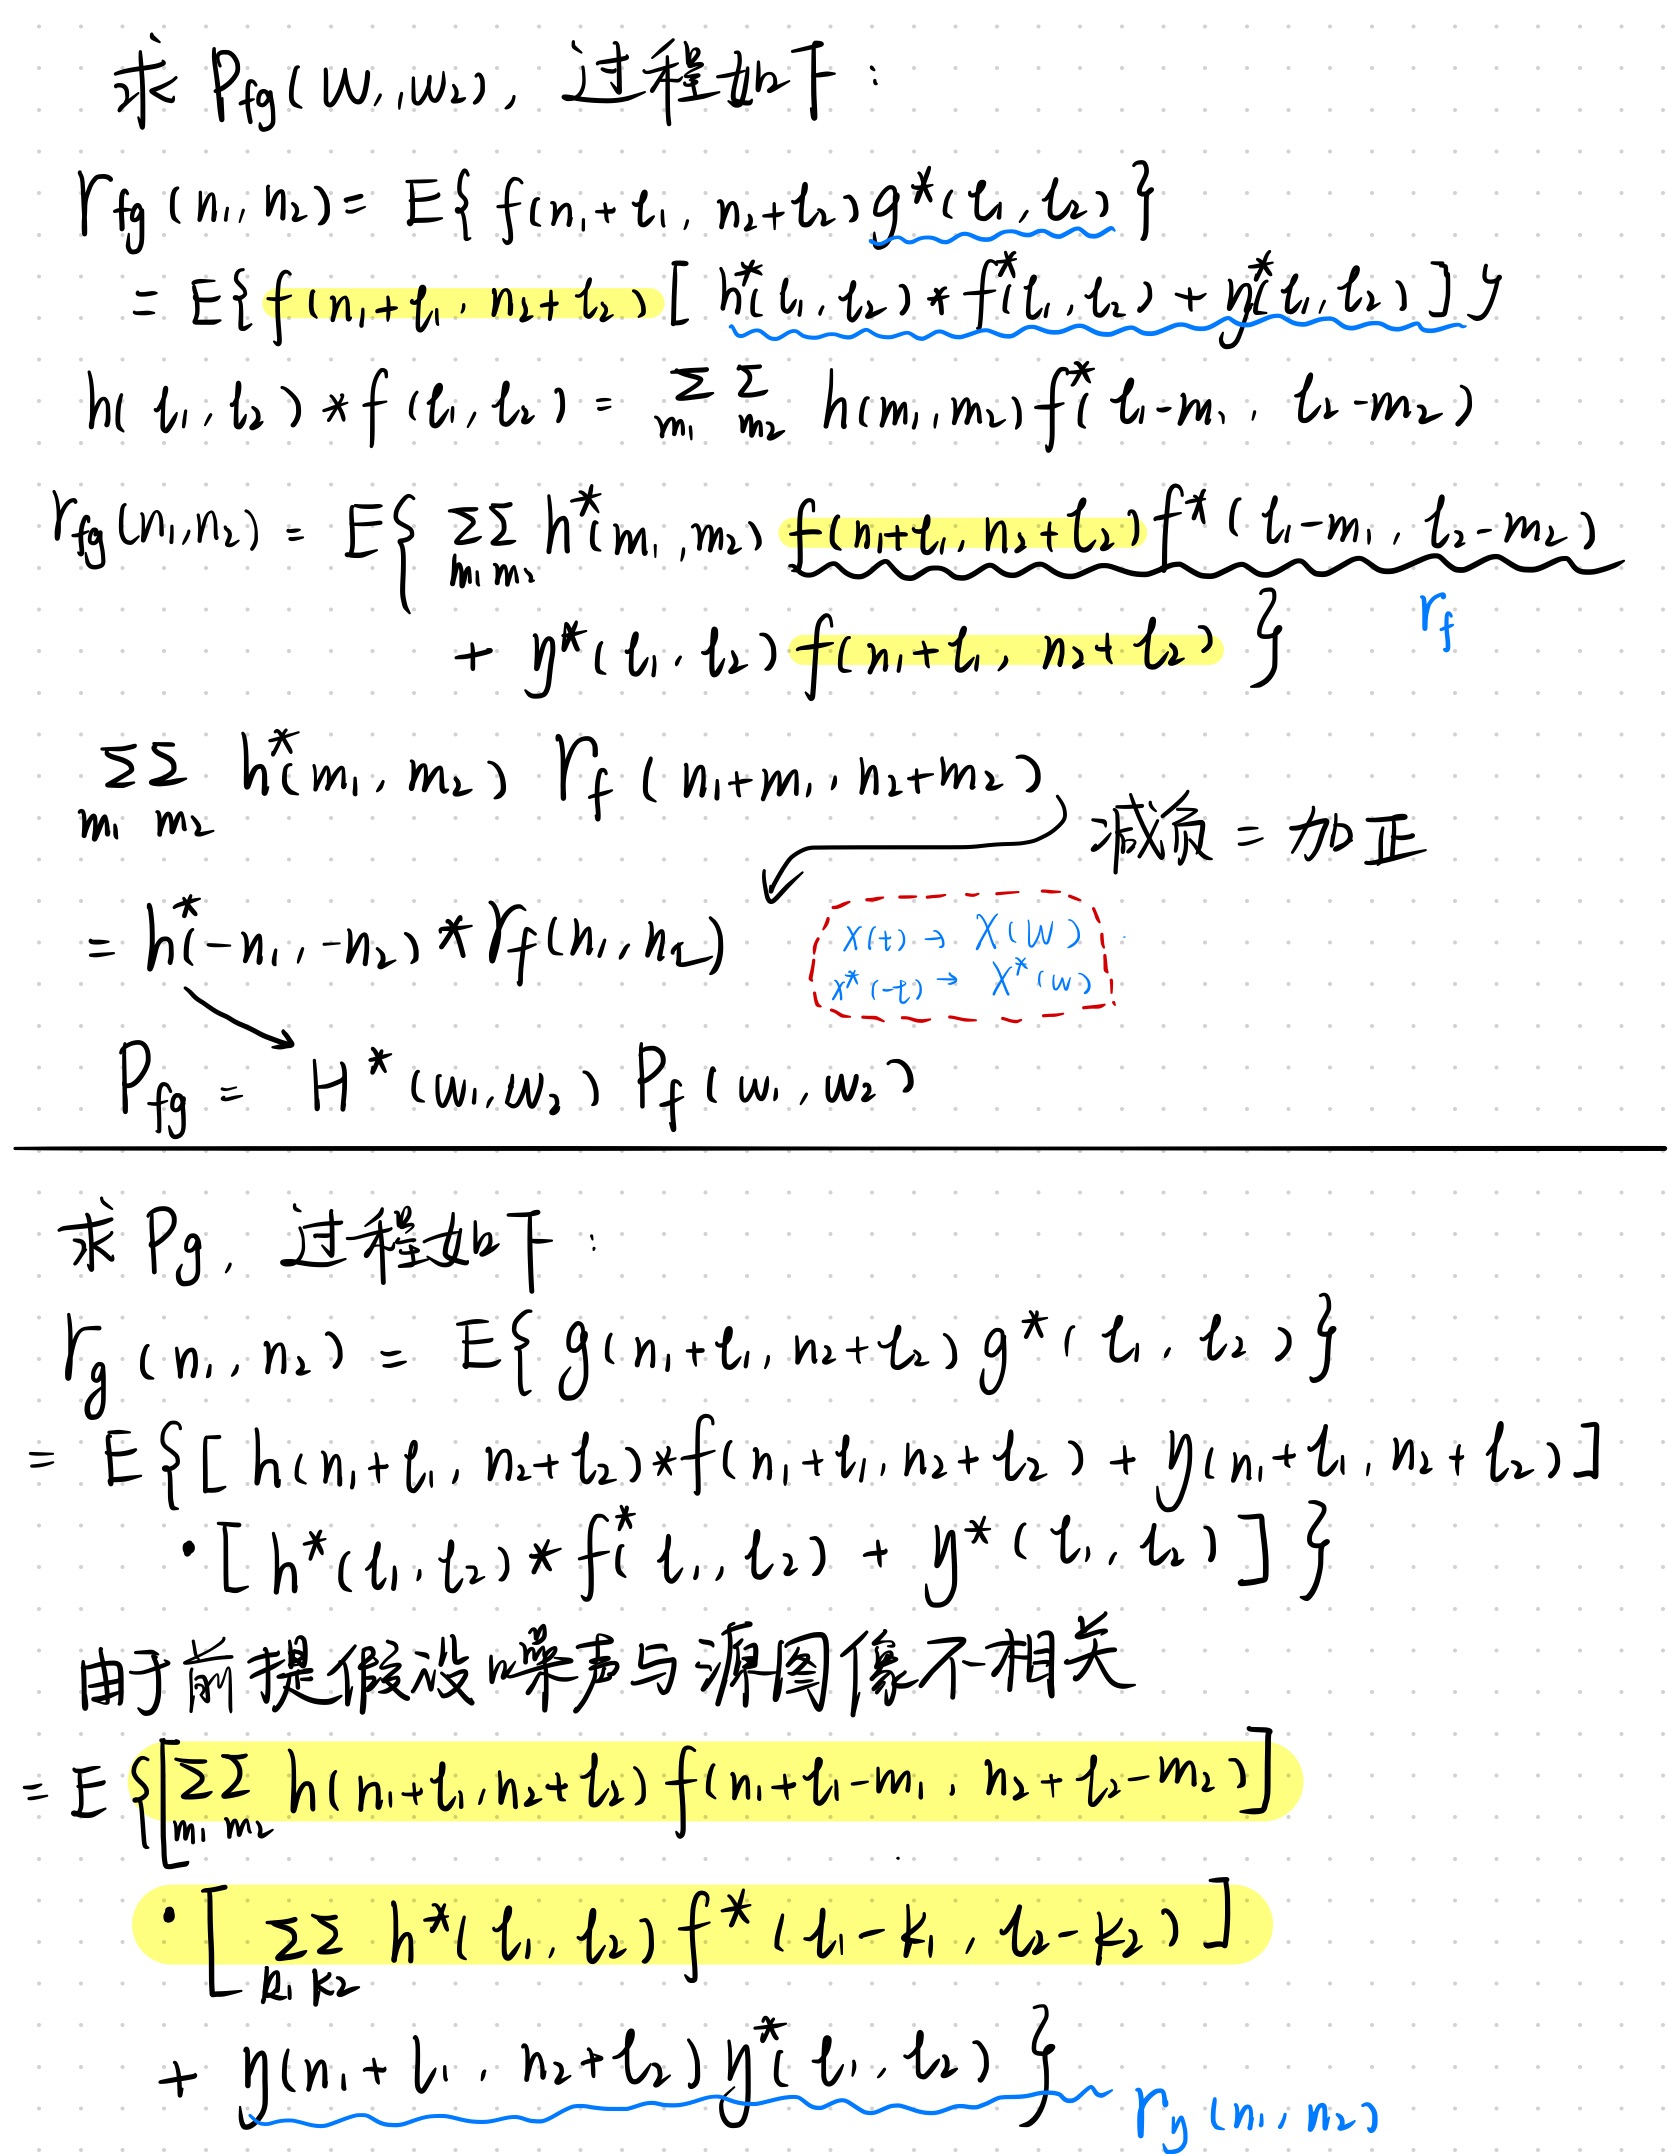 求 P_fg(w₁,w₂), 过程如下:
r_fg(n₁,n₂)= E{ f(n₁+l₁, n₂+l₂) g*(l₁,l₂) }
= E{ f(n₁+l₁, n₂+l₂) [ h*(l₁,l₂) * f*(l₁,l₂) + η*(l₁,l₂) ] }
h(l₁,l₂) * f(l₁,l₂) = Σ_m₁ Σ_m₂ h(m₁,m₂) f*(l₁-m₁, l₂-m₂)
r_fg(n₁,n₂) = E{ Σ_m₁ Σ_m₂ h*(m₁,m₂) f(n₁+l₁, n₂+l₂) f*(l₁-m₁, l₂-m₂)
r_f
+ η*(l₁,l₂) f(n₁+l₁, n₂+l₂) }
Σ_m₁ Σ_m₂ h*(m₁,m₂) r_f(n₁+m₁, n₂+m₂)
减负 = 加正
= h*(-n₁,-n₂) * r_f(n₁,n₂)
x(t) → X(w)
x*(-t) → X*(w)
P_fg = H*(w₁,w₂) P_f(w₁,w₂)
求 P_g, 过程如下:
r_g(n₁,n₂) = E{ g(n₁+l₁, n₂+l₂) g*(l₁,l₂) }
= E{ [ h(n₁+l₁, n₂+l₂) * f(n₁+l₁, n₂+l₂) + η(n₁+l₁, n₂+l₂) ]
· [ h*(l₁,l₂) * f*(l₁,l₂) + η*(l₁,l₂) ] }
由于前提假设噪声与源图像不相关
= E{ [ Σ_m₁ Σ_m₂ h(n₁+l₁, n₂+l₂) f(n₁+l₁-m₁, n₂+l₂-m₂) ]
· [ Σ_k₁ Σ_k₂ h*(l₁,l₂) f*(l₁-k₁, l₂-k₂) ]
+ η(n₁+l₁, n₂+l₂) η*(l₁,l₂) }
r_η(n₁,n₂)